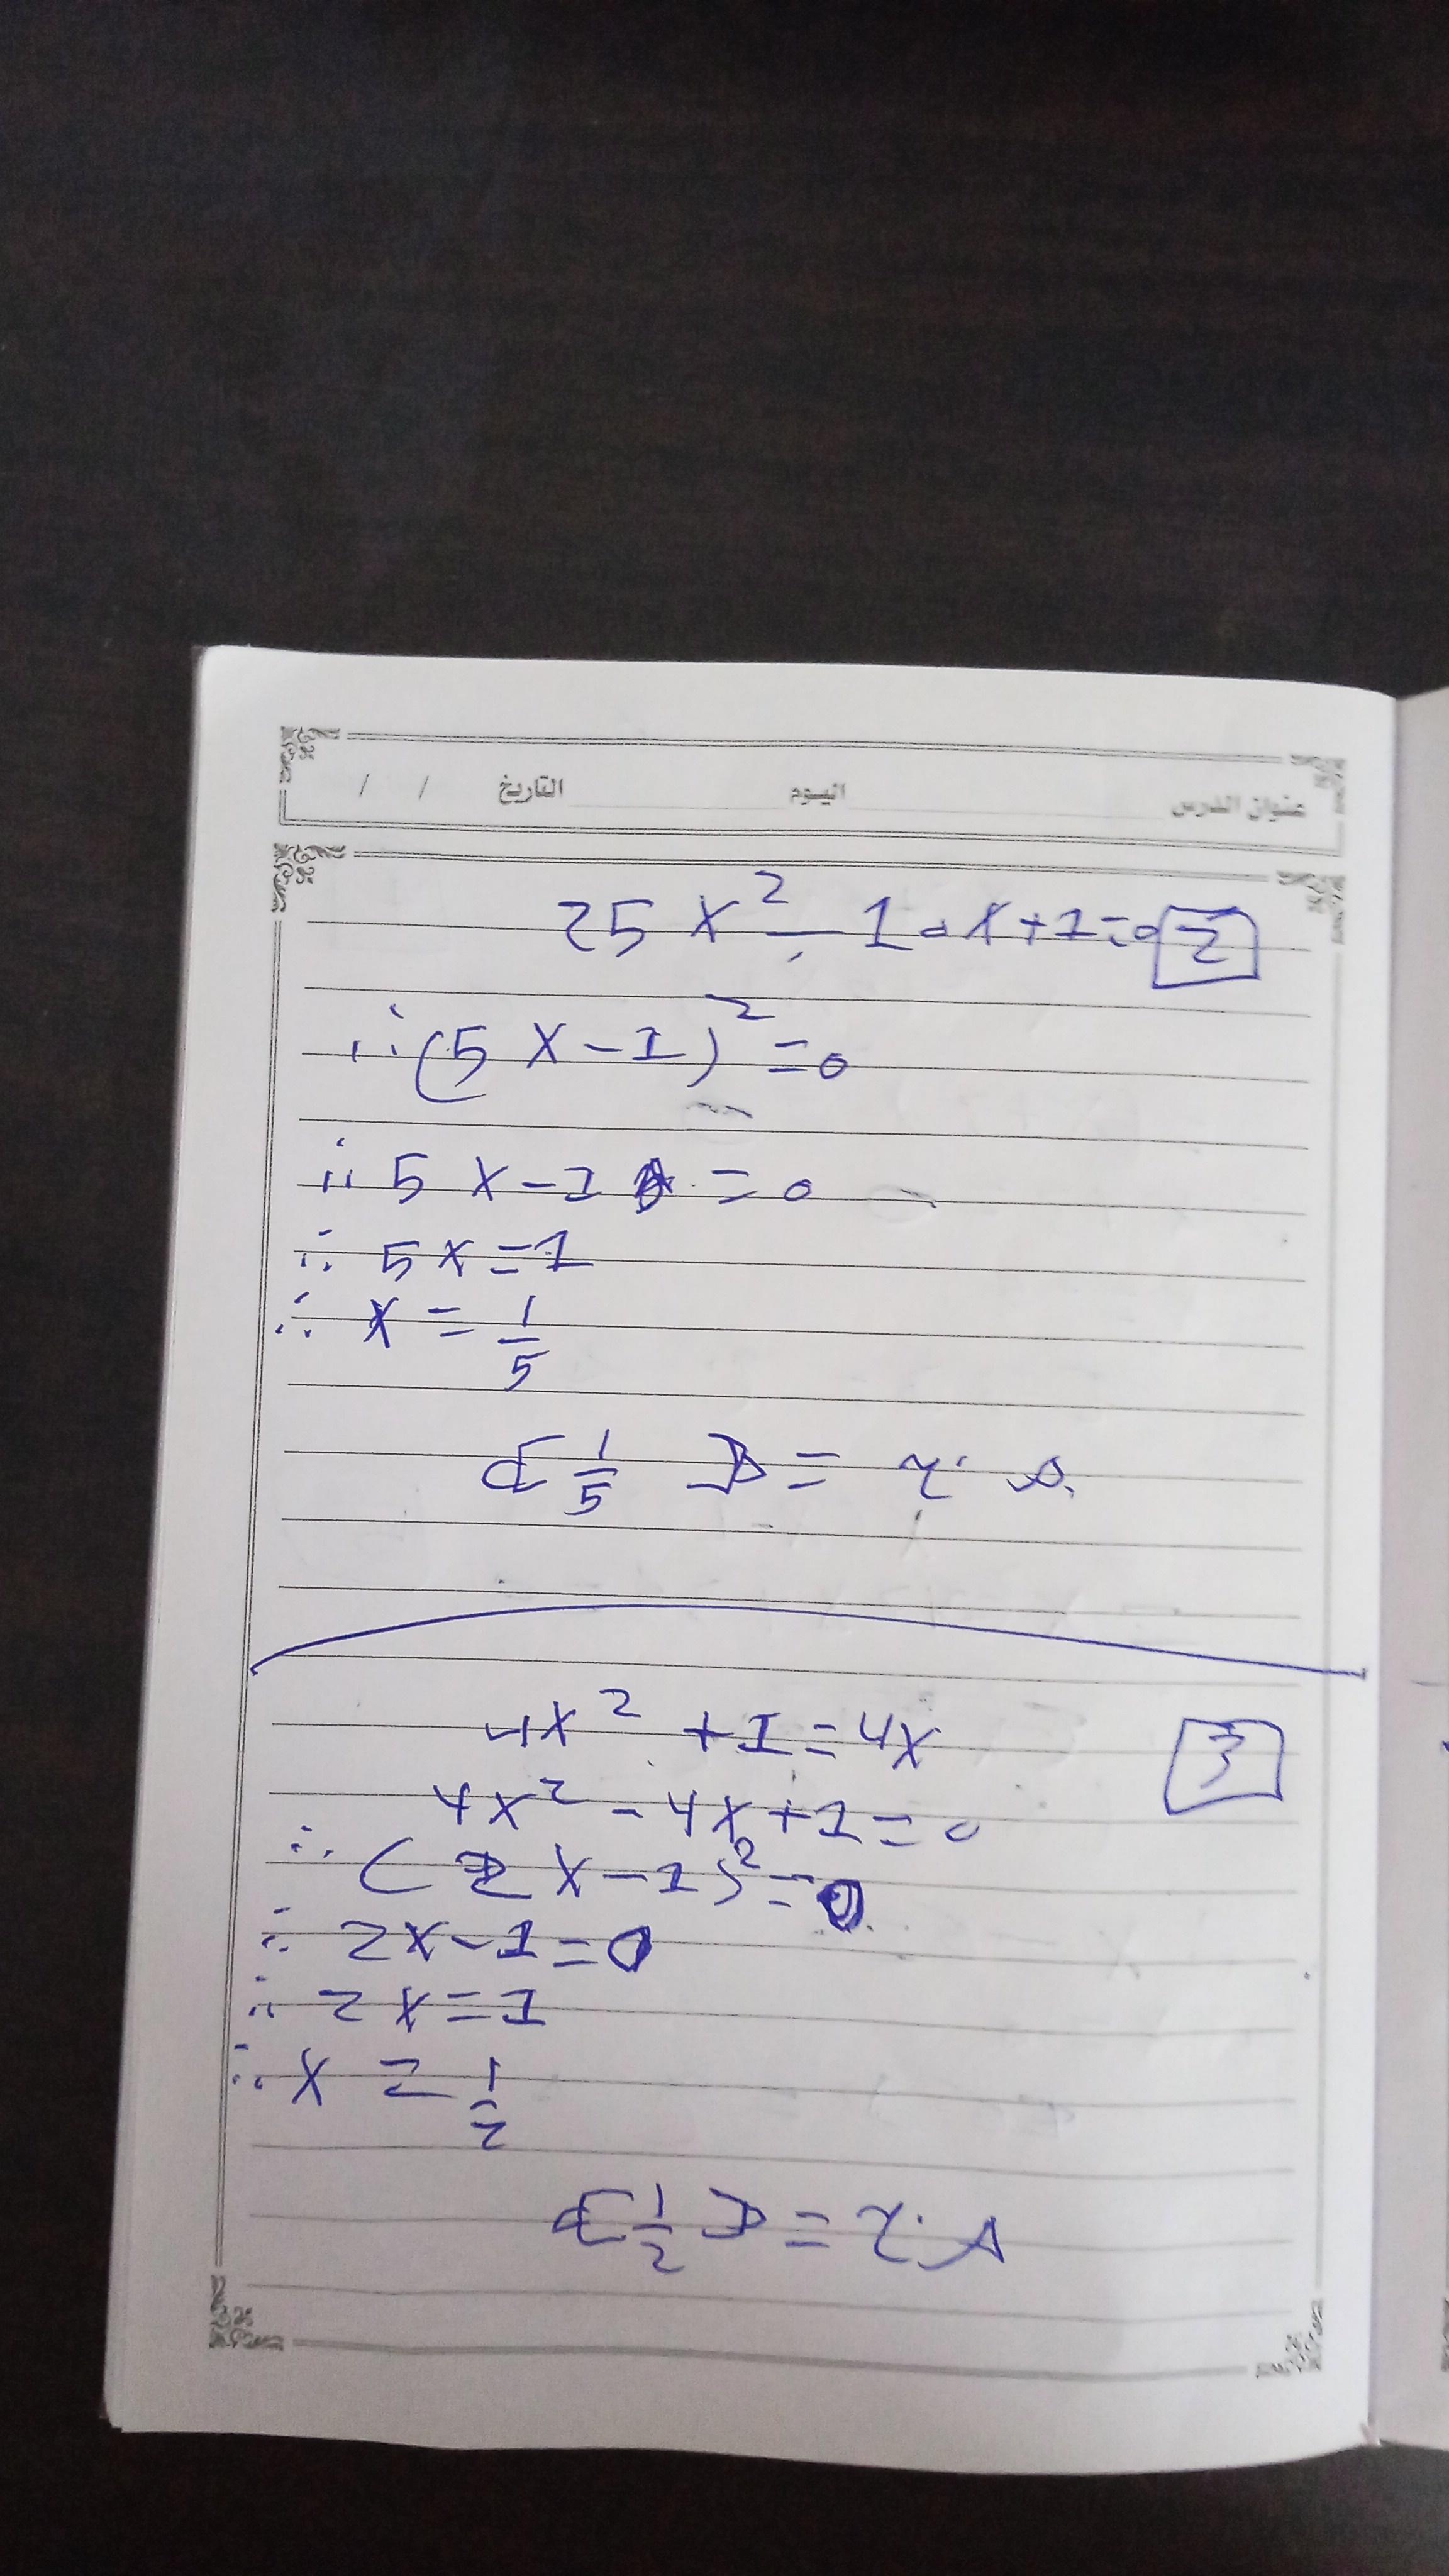 عنوان الدرس اليوم التاريخ / /
25 x² - 10x + 1 = 0 2
∴ (5x - 1)² = 0
∴ 5x - 1 = 0
∴ 5x = 1
∴ x = 1/5
{1/5} = ح . م
4x² + 1 = 4x 3
4x² - 4x + 1 = 0
∴ (2x - 1)² = 0
∴ 2x - 1 = 0
∴ 2x = 1
∴ x = 1/2
{1/2} = ح . م